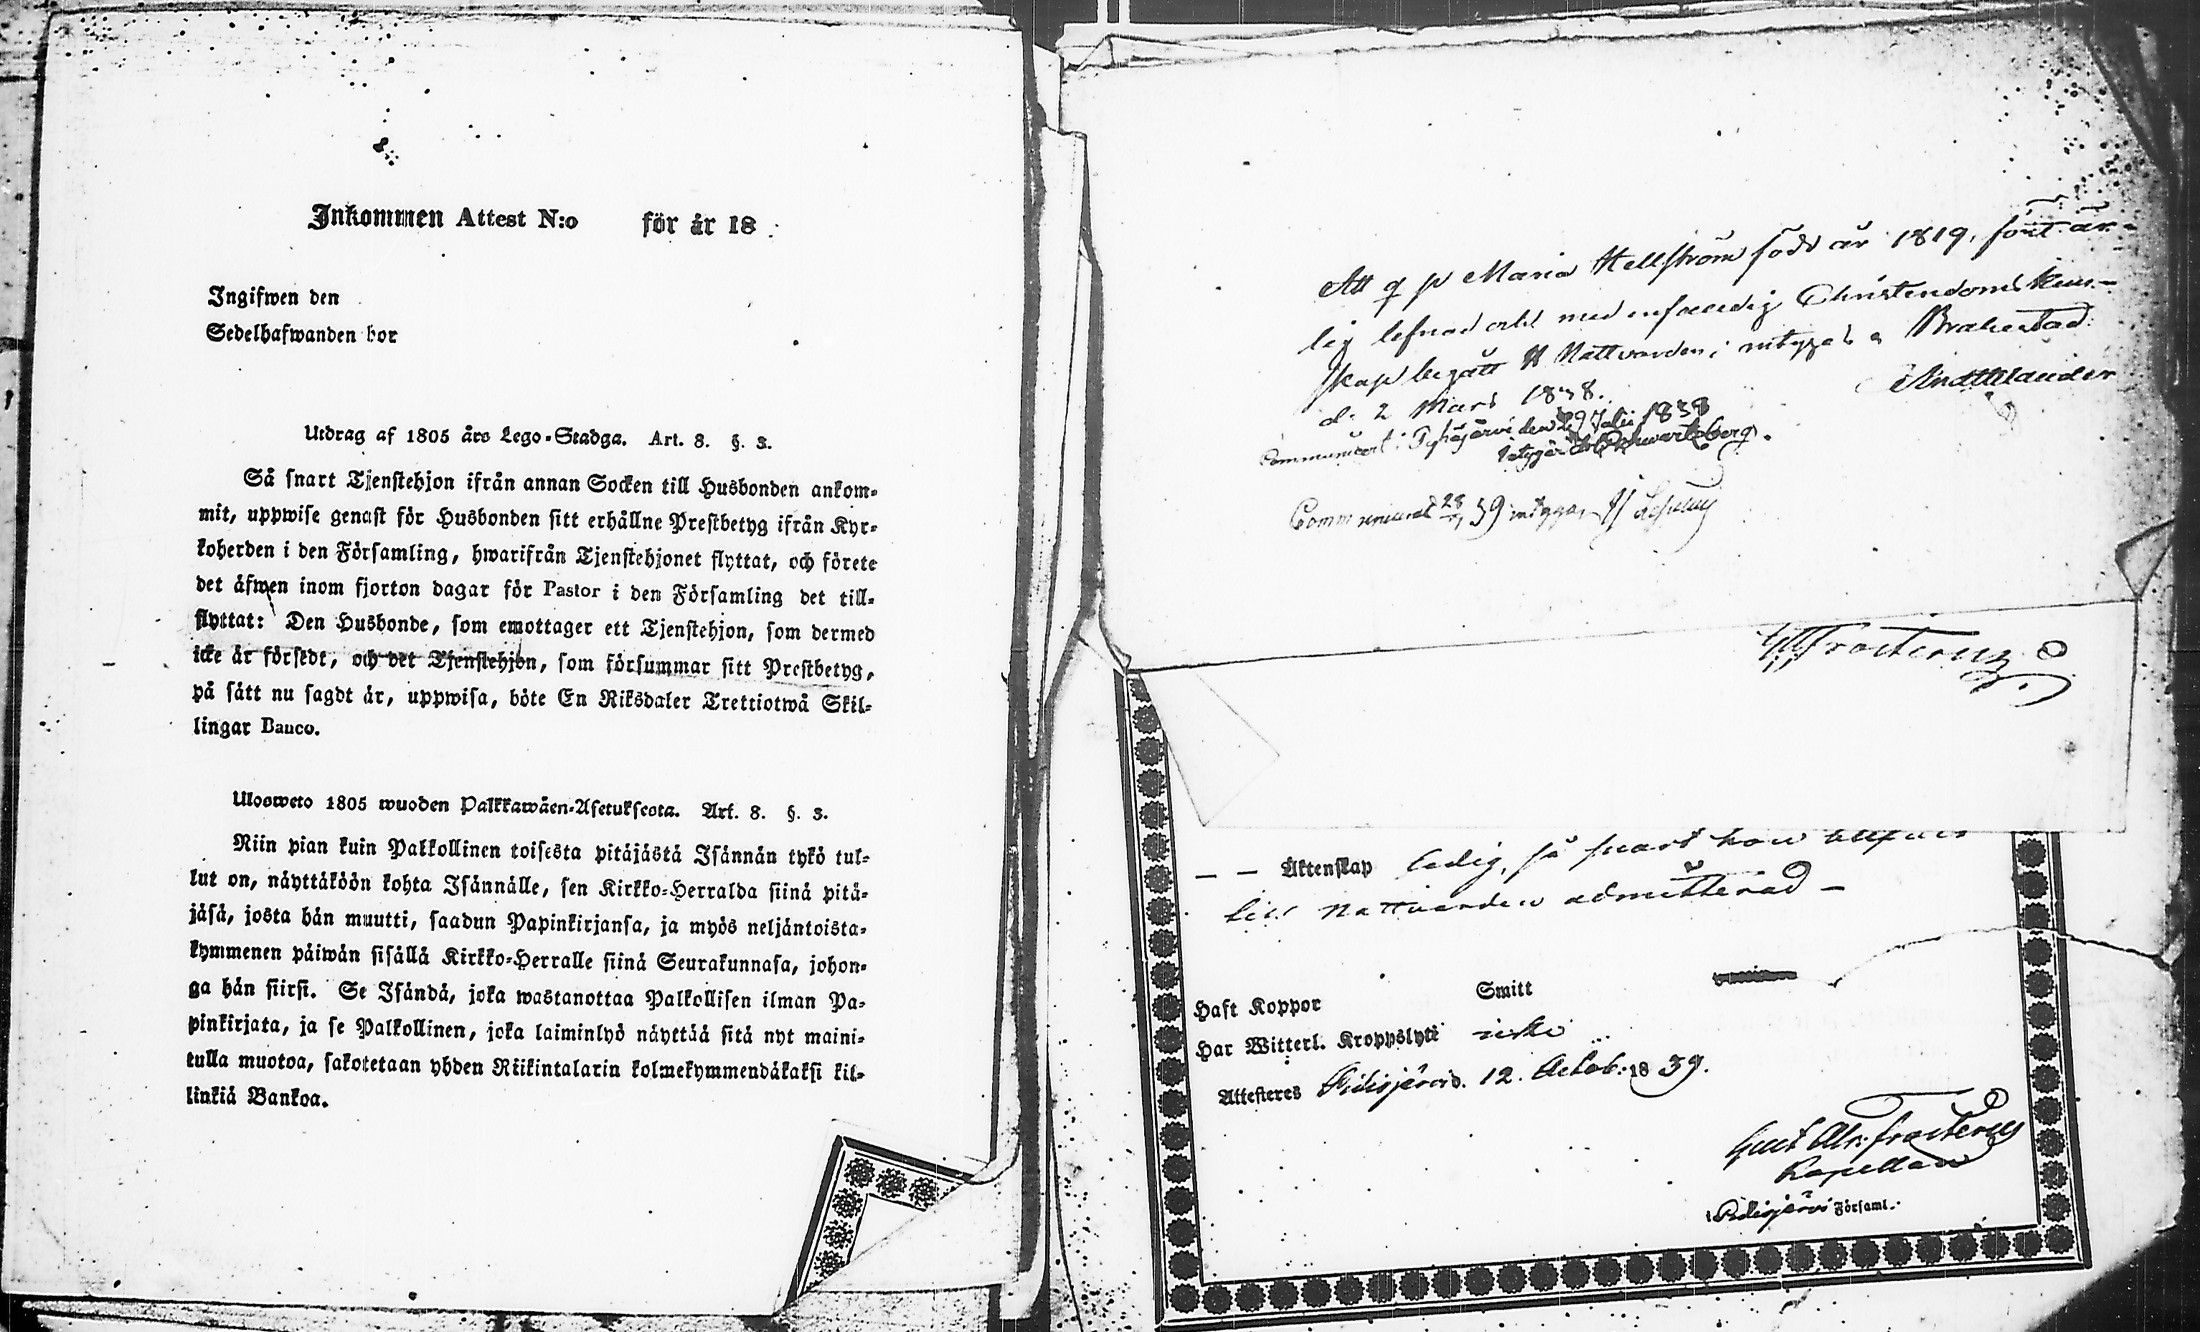 Inkommen Attest N:o för år 18
Ingifwen den
Sedelhafwanden bor
Utdrag af 1805 års Lego-Stadga. Art. 8. §. 3.
Så snart Tjenstehjon ifrån annan Socken till Husbonden ankom-
mit, uppwise genast för Husbonden sitt erhållne Prestbetyg ifrån Kyr-
koherden i den Församling, hwarifrån Tjenstehjonet flyttat, och förete
det äfwen inom fjorton dagar för Pastor i den Församling det till-
flyttat: Den Husbonde, som emottager ett Tjenstehjon, som dermed
icke är försedt, och det Tjenstehjon, som försummar sitt Prestbetyg,
på sätt nu sagdt är, uppwisa, böte En Riksdaler Trettiotwå Skil-
lingar Banco.
Ulosweto 1805 wuoden Palkkawäen-Asetuksesta. Art. 8. §. 3.
Niin pian kuin Palkollinen toisesta pitäjästä Isännän tykö tul-
lut on, näyttäköön kohta Isännälle, sen Kirkko-Herralda siinä pitä-
jäsä, josta hän muutti, saadun Papinkirjansa, ja myös neljäntoista-
kymmenen päiwän sisällä Kirkko-Herralle siinä Seurakunnasa, johon-
ga hän siirsi. Se Isändä, joka wastanottaa Palkollisen ilman Pa-
pinkirjata, ja se Palkollinen, joka laiminlyö näyttää sitä nyt maini-
tulla muotoa, sakotetaan yhden Riikintalarin kolmekymmendäkaksi kil-
linkiä Bankoa.
Att q p Maria Hellström född år 1819, fört är-
lig lefnad och med Christendoms kun-
skap begått H Nattvarden, intygas a Brahestad
d. 2 Mars 1838.
Communicerat i Pyhäjärvi den 29 Julii 1838
intygar Schwartzberg.
Communicerat 39 intygar
Frosterus
Äktenskap ledig, så snart hon
till Nattvarden admitterad -
Haft Koppor Smitt
Har Witterl. Kroppslyte icke
Attesteres Pidisjärvi d. 12. Octob. 1839.
Gust Abr: Frosterus
Kapellan
Pidisjärvi Församl.